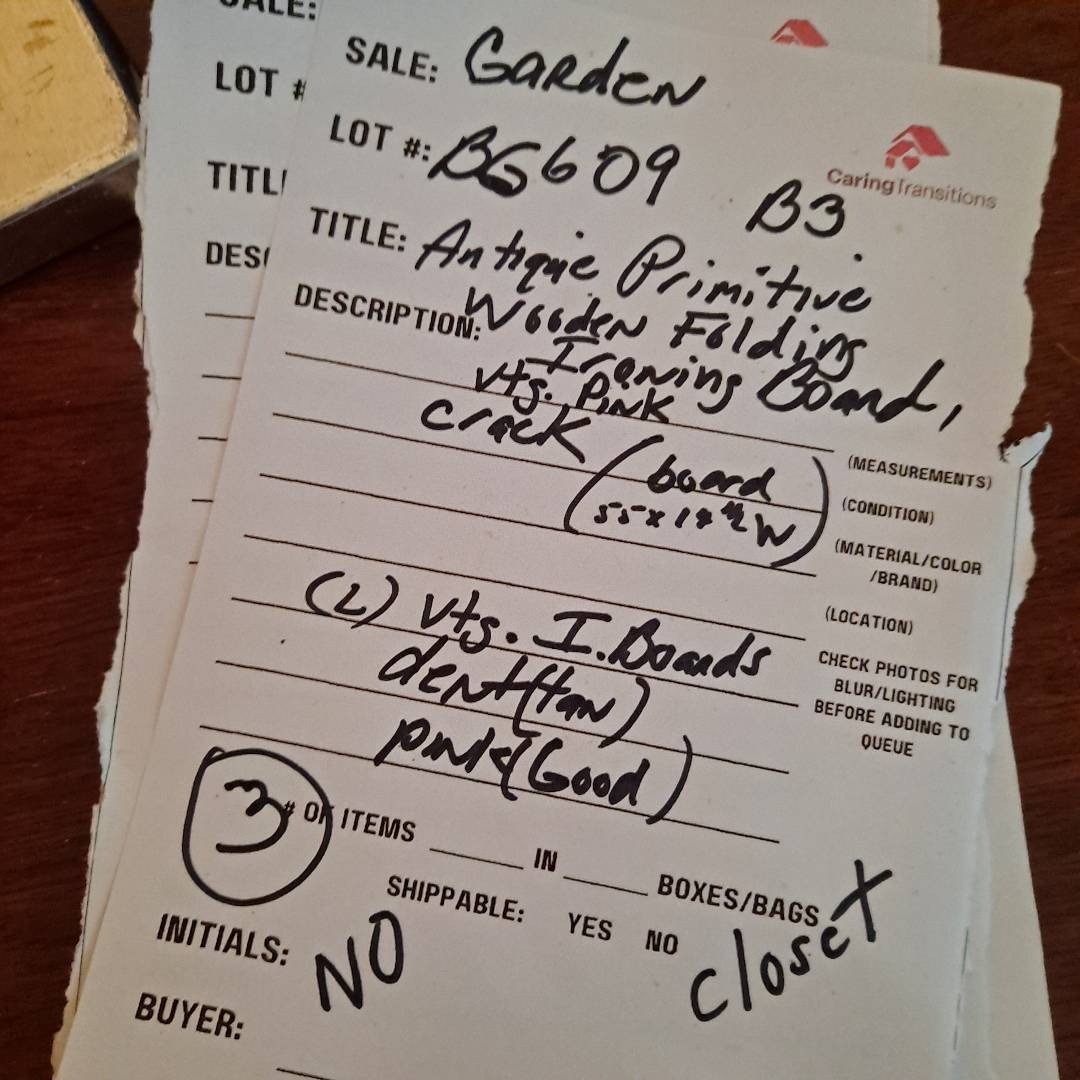 SALE:
LOT #
TITL
DES
SALE: Garden
LOT #: BG609 B3
CaringTransitions
TITLE: Antique Primitive
DESCRIPTION: Wooden Folding
Ironing Board,
vtg. Pink
crack (board
55x14 1/2 W)
(MEASUREMENTS)
(CONDITION)
(MATERIAL/COLOR
/BRAND)
(LOCATION)
(2) vtg. I.Boards
dent(tan)
pink(Good)
CHECK PHOTOS FOR
BLUR/LIGHTING
BEFORE ADDING TO
QUEUE
3 # OF ITEMS IN BOXES/BAGS
SHIPPABLE: YES NO closet
INITIALS: NO
BUYER: